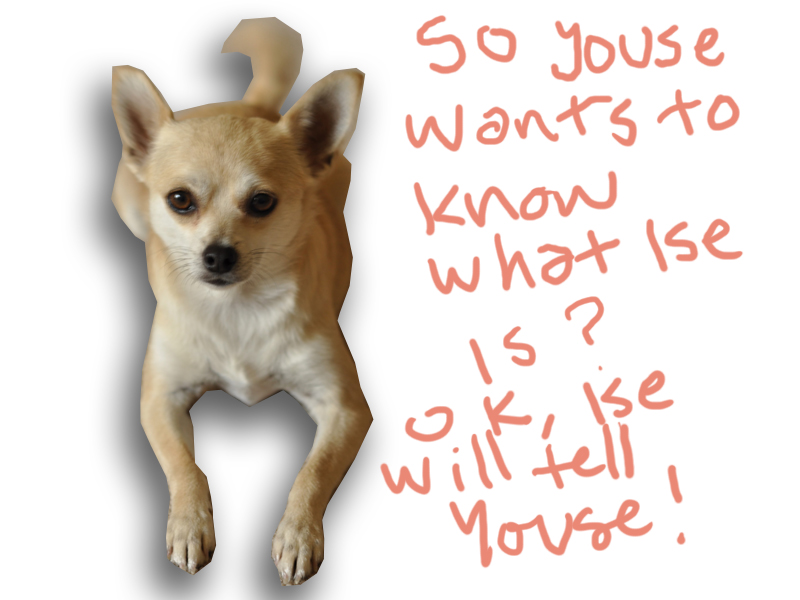 So youse
wants to
know
what Ise
Is?
OK, Ise
will tell
Youse!